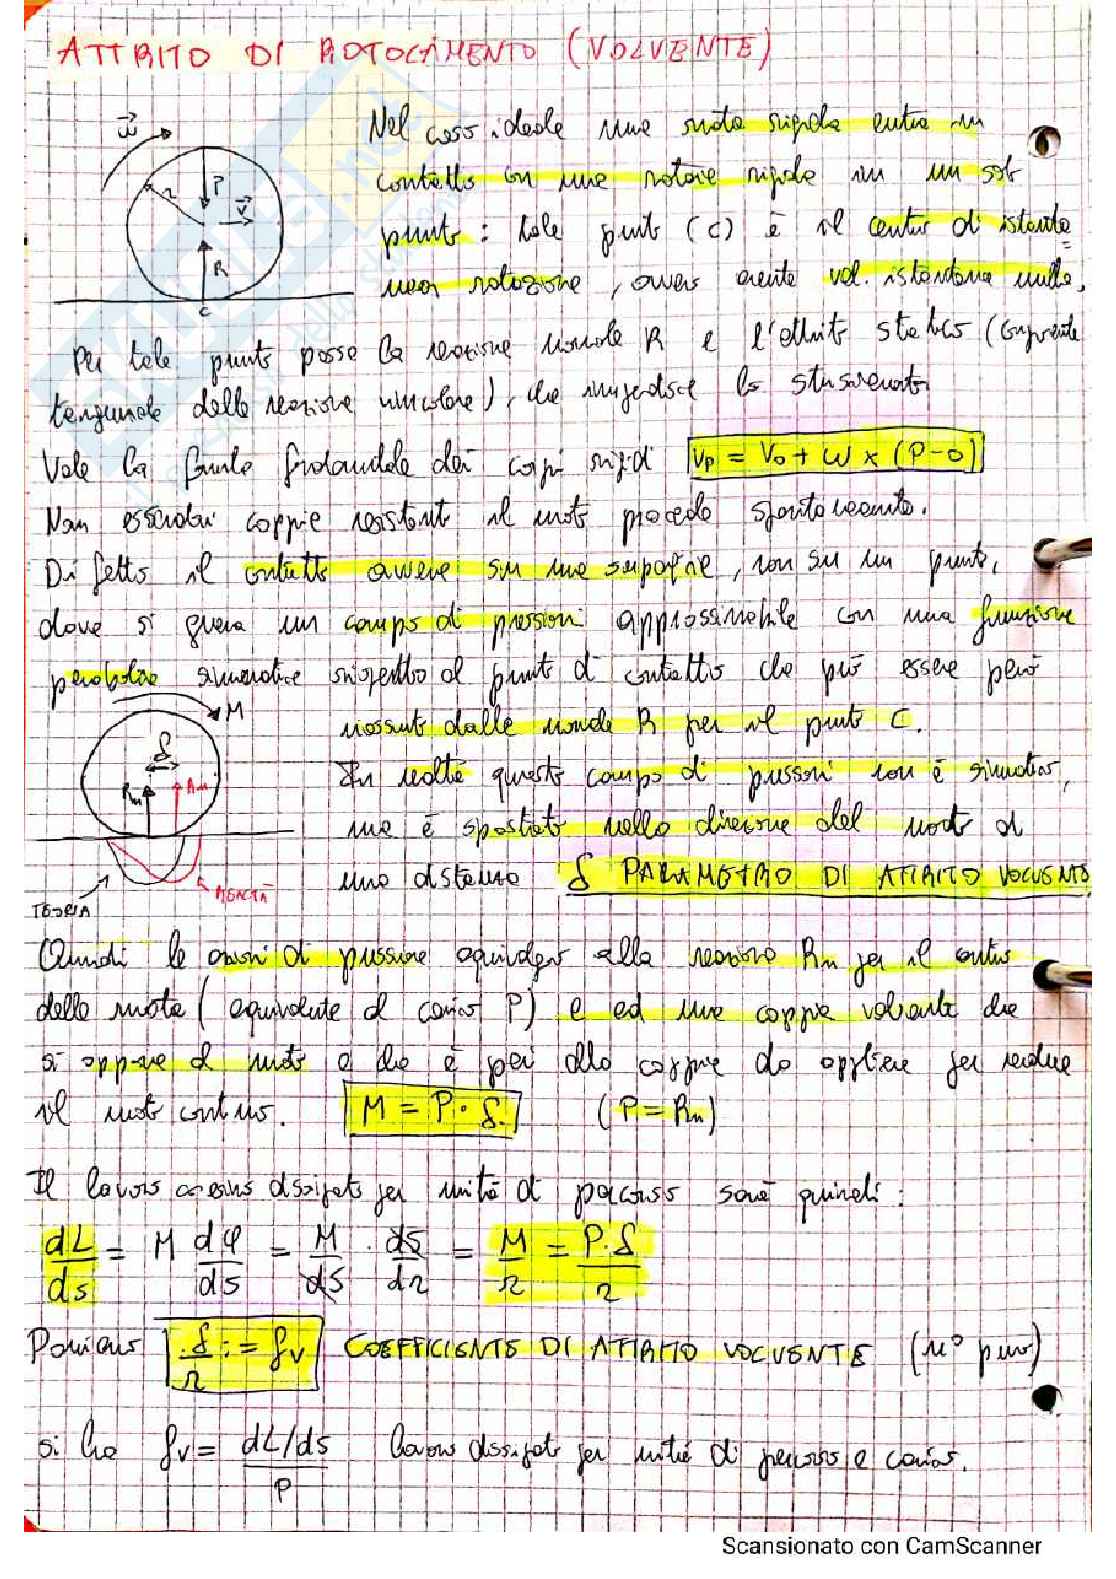 ATTRITO DI ROTOLAMENTO (VOLVENTE)
Nel caso ideale una ruota rigida entra in
contatto con una rotaia rigida in un sol
punto: tale punto (C) è il centro di istanta=
nea rotazione, ovvero avente vel. istantanea nulla.
Per tale punto passa la reazione normale R e l'attrito statico (componente
tangenziale della reazione vincolare), che impedisce lo strisciamento.
Vale la formula fondamentale dei corpi rigidi Vp = Vo + ω × (P-O)
Non essendoci coppie resistenti il moto procede spontaneamente.
Di fatto il contatto avviene su una superficie, non su un punto,
dove si genera un campo di pressioni approssimabile con una funzione
parabolica simmetrica rispetto al punto di contatto che può essere però
riassunto dalla normale R per il punto C.
In realtà questo campo di pressioni non è simmetrico,
ma è spostato nella direzione del moto di
una distanza δ PARAMETRO DI ATTRITO VOLVENTE
Quindi le azioni di pressione equivalgono alla reazione Rn per il centro
della ruota (equivalente al carico P) e ad una coppia volvente che
si oppone al moto e che è pari alla coppia da applicare per rendere
il moto continuo. M = P · δ (P = Rn)
Il lavoro dissipato per unità di percorso sarà quindi:
dL/ds = M dφ/ds = M/ds · ds/dr = M/r = P·δ/r
Poniamo δ/r := fv COEFFICIENTE DI ATTRITO VOLVENTE (n° puro)
si ha fv = dL/ds / P lavoro dissipato per unità di percorso e carico.
ω
r
P
V
R
C
M
δ
Rn
Rn
TEORIA
REALTÀ
Scansionato con CamScanner